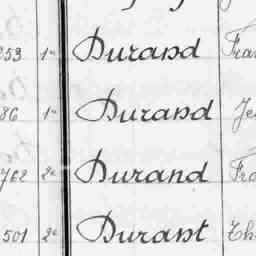 259 1e Durand Fra
86 1e Durand Je
762 2e Durand Fra
501 2e Durant Th